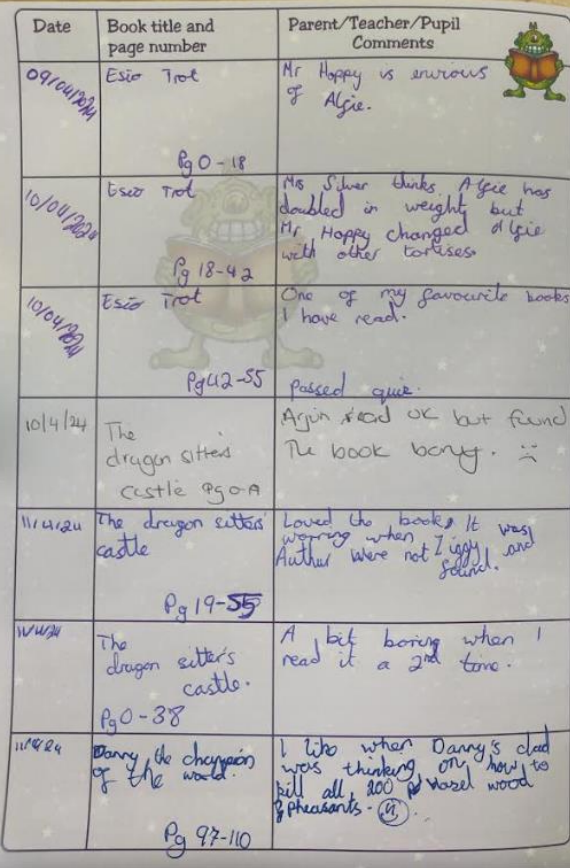 Date
Book title and
page number
Parent/Teacher/Pupil
Comments
09/04/2024
Esio Trot
Pg 0-18
Mr Hoppy is envious
of Algie.
10/04/2024
Esio Trot
Pg 18-42
Mrs Silver thinks Algie has
doubled in weight but
Mr Hoppy changed Algie
with other tortises.
10/04/2024
Esio Trot
Pg 42-55
One of my favourite books
I have read.
Passed quiz.
10/4/24
The
dragon sitters
castle Pg 0-
Arjun read OK but found
The book boring.
11/4/24
The dragon sitters'
castle
Pg 19-55
Loved the book, It was
worring when Ziggy and
Arthur were not found.
The
dragon sitter's
castle.
Pg 0-38
A bit boring when I
read it a 2nd time.
Danny the champion
of the world.
Pg 97-110
I like when Danny's dad
was thinking on how to
kill all 200 Hazel wood
pheasants.